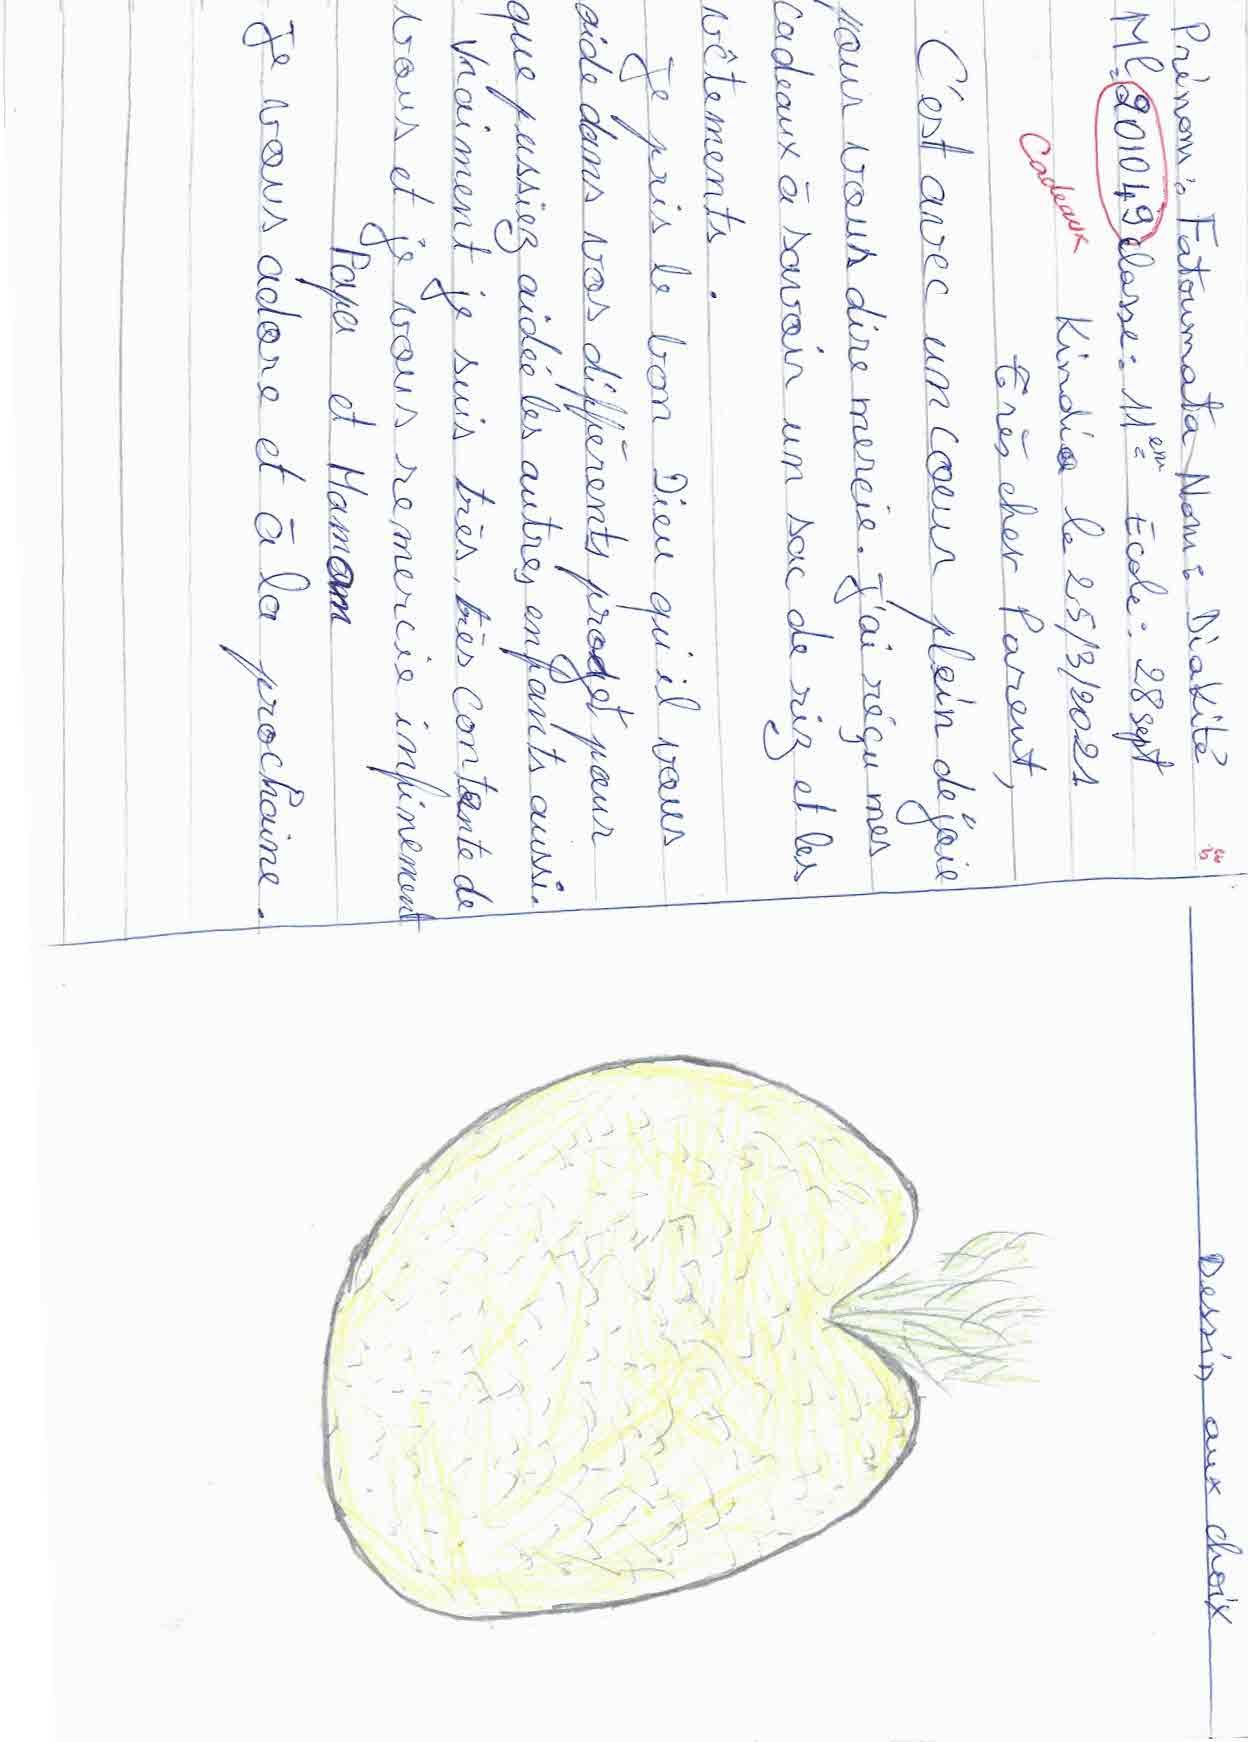 Prénom: Fatoumata Nom: Diakité
Ml: 201049 classe: 11em Ecole: 28 sept
Cadeaux
Kindia le 25/3/2021
très cher Parent,
C'est avec un coeur plein de joie
pour vous dire mercie. J'ai réçu mes
cadeaux à savoir un sac de riz et les
vêtements.
Je pris le bon Dieu qu'il vous
aide dans vos différents prodet pour
que pussiez aidée les autres enfants aussi.
Vraiment je suis très, très contante de
vous et je vous remercie infinement
Papa et Mamam
Je vous adore et à la prochaine.
Dessin aux choix